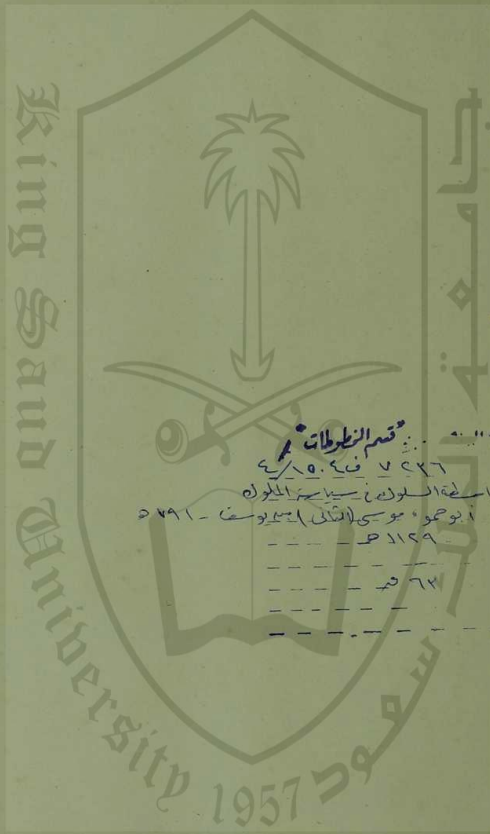 King Saud University
1957
جامعة الملك سعود
"قسم المخطوطات"
٧٢٣٦ ف ١٥٠٤/٤
اسطة السلوك في سياسة الملوك
أبو حمو، موسى (الثاني) بن يوسف - ٧٩١ ھ
١١٢٩ ھ
٦٣ ق